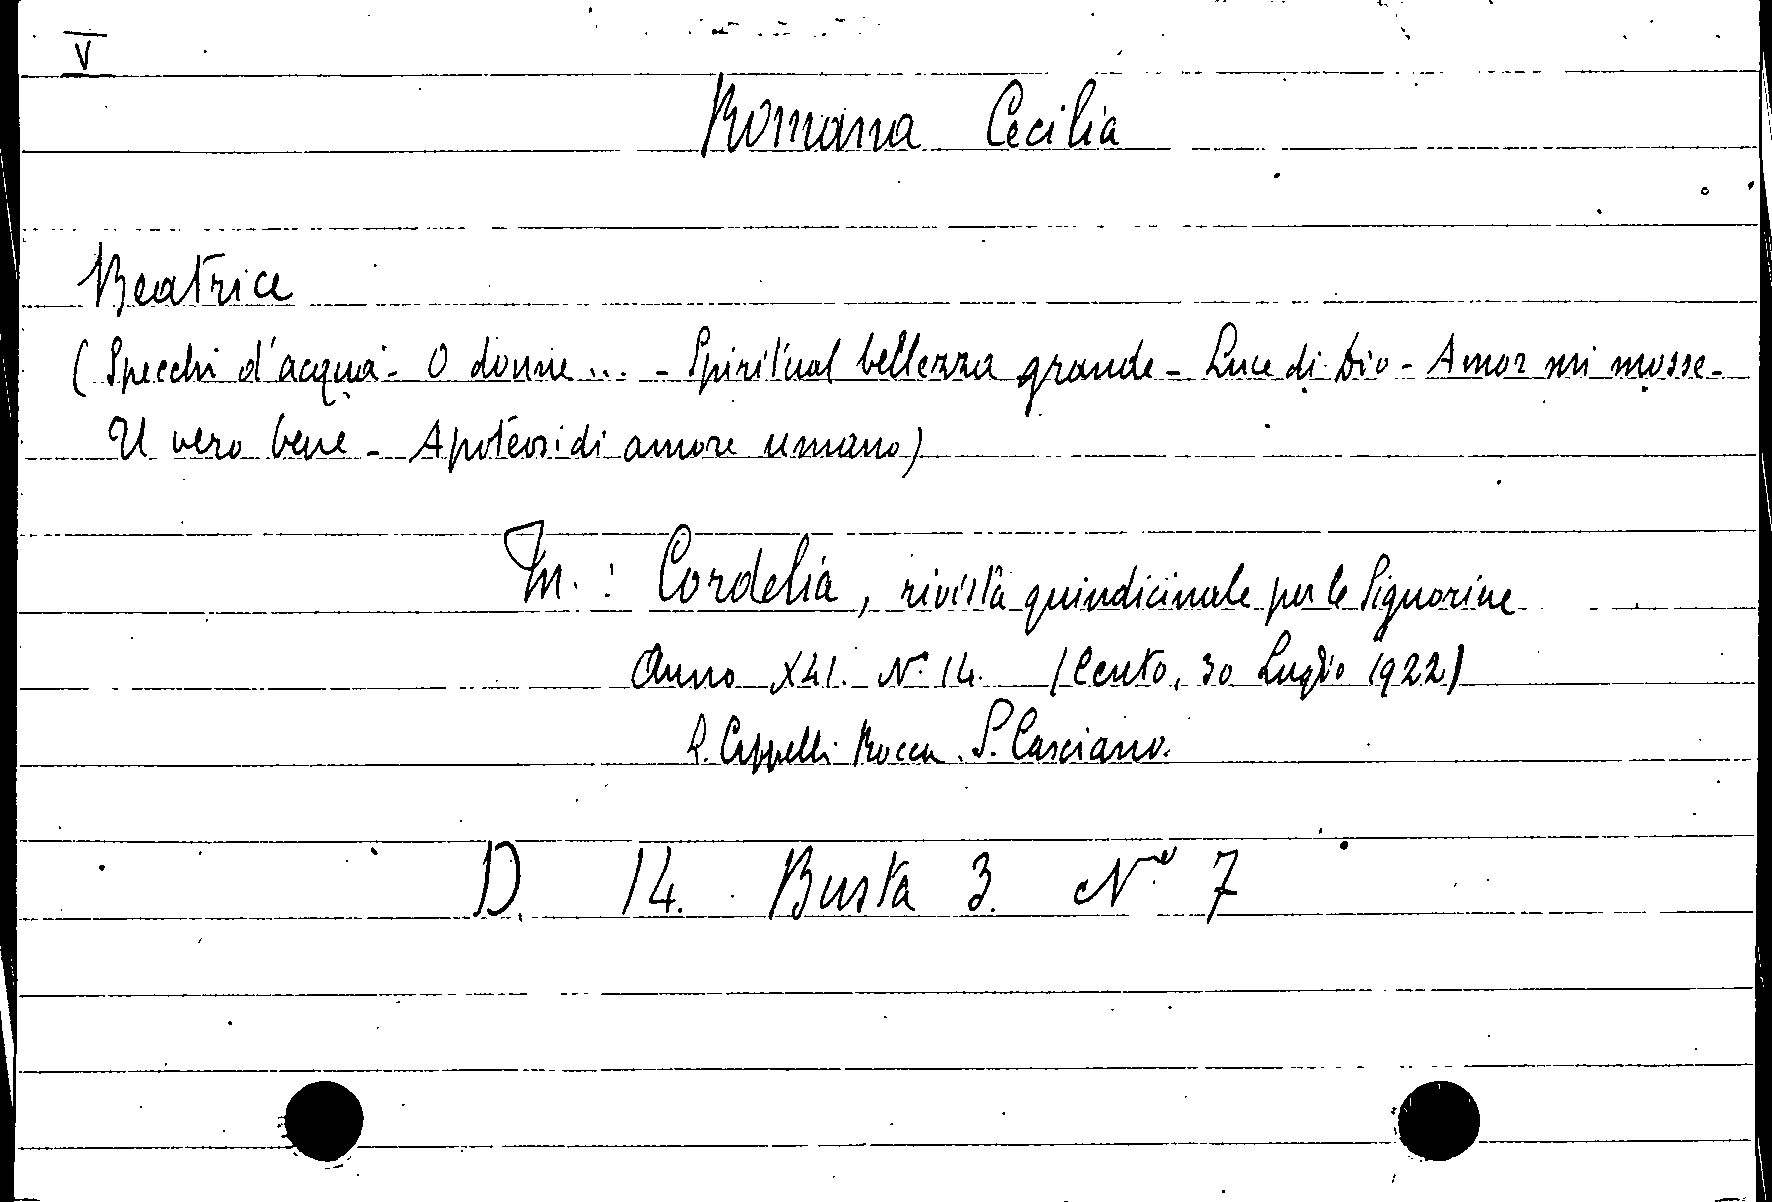 V
Romana Cecilia
Beatrice
(Specchi d'acqua - O donne... - Spiritual bellezza grande - Luce di Dio - Amor mi mosse -
Il vero bene - Apoteosi di amore umano)
In.: Cordelia, rivista quindicinale per le Signorine
Anno XLI. N° 14. (Cento, 30 Luglio 1922)
L. Cappelli Rocca S. Casciano.
D. 14. Busta 3. N° 7